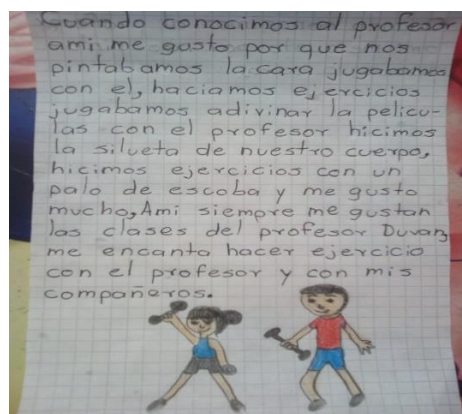 Cuando conocimos al profesor
ami me gusto por que nos
pintabamos la cara jugabamos
con el, haciamos ejercicios
jugabamos adivinar la pelicu-
las con el profesor hicimos
la silueta de nuestro cuerpo,
hicimos ejercicios con un
palo de escoba y me gusto
mucho, Ami siempre me gustan
las clases del profesor Duvan,
me encanta hacer ejercicio
con el profesor y con mis
compañeros.